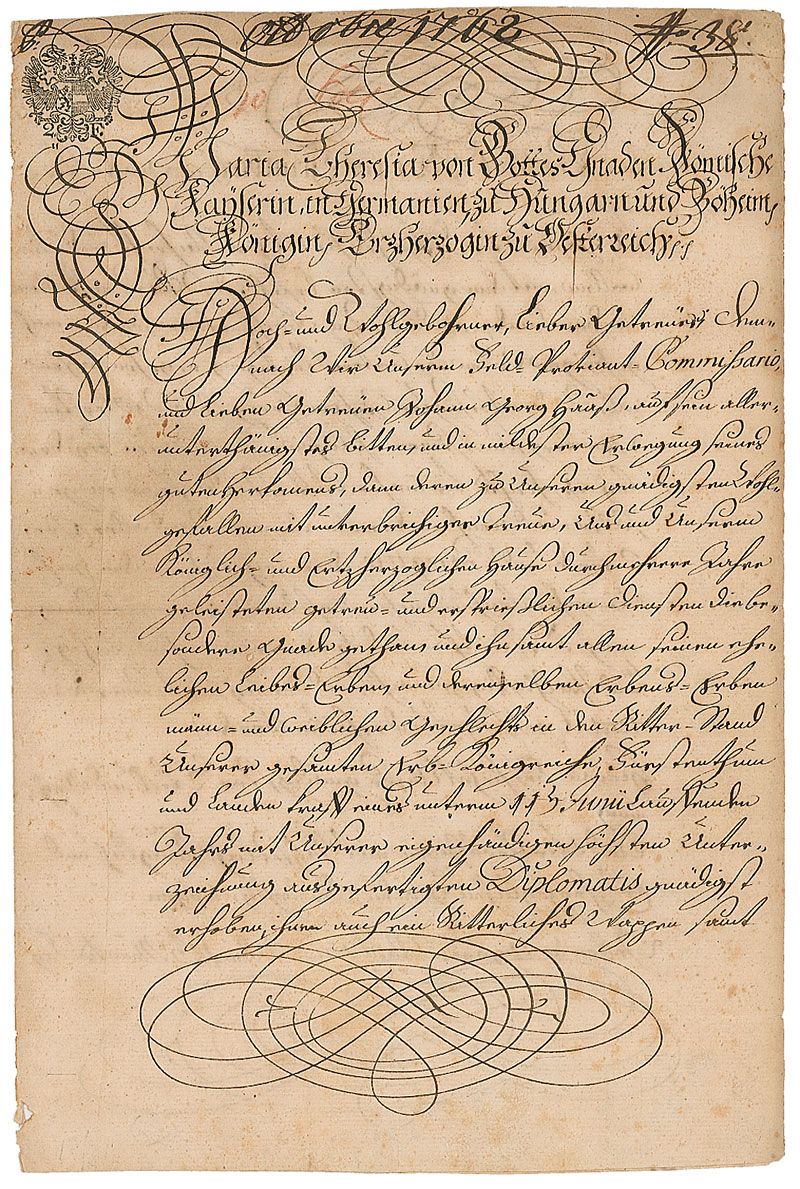 8bre 1762 No 38.
2 E
Maria Theresia von Gottes Gnaden Römische
Kayserin, in Germanien, zu Hungarn und Böheim,
Königin, Ertzherzogin zu Oesterreich,
Hoch- und Wohlgebohrner, Lieber Getreuer! Dem-
nach Wir Unserem Feld- Proviant- Commissario,
und Lieben Getreuen Johann Georg Hauß, auf sein aller-
unterthänigstes bitten, und in mildester Erwegung seines
guten Herkomens, dann deren zu Unseren gnädigsten Wohl-
gefallen mit unverbrichiger Treue, Uns und Unserem
Königlich- und Ertzherzoglichen Hause durch mehrere Jahre
geleisteten getreu- und ersprießlichen Diensten die be-
sondere Gnade gethan, und ihn samt allen seinen ehe-
lichen Leibes-Erben, und derenselben Erbens-Erben
männ- und weiblichen Geschlechts in den Ritter-Stand
Unserer gesamten Erb-Königreiche, Fürstenthum
und Landen krafft eines unterm 11t. Junii Lauffenden
Jahrs mit Unserer eigenhändigen höchsten Unter-
zeichnung ausgefertigten Diplomatis gnädigst
erhoben, ihme auch ein Ritterliches Wappen samt